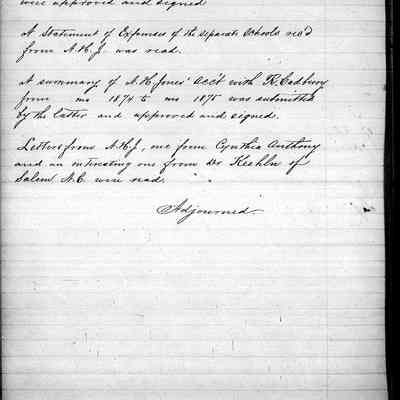 were approved and signed
A Statement of Expenses of the separate Schools rec'd
from A.H.J. was read.
A summary of A.H. Jones' acc't with R. Cadbury
from mo 1874 to mo 1875 was submitted
by the latter and approved and signed.
Letters from A.H.J., one from Cynthia Anthony
and an interesting one from Dr Keehln of
Salem N.C. were read.
Adjourned